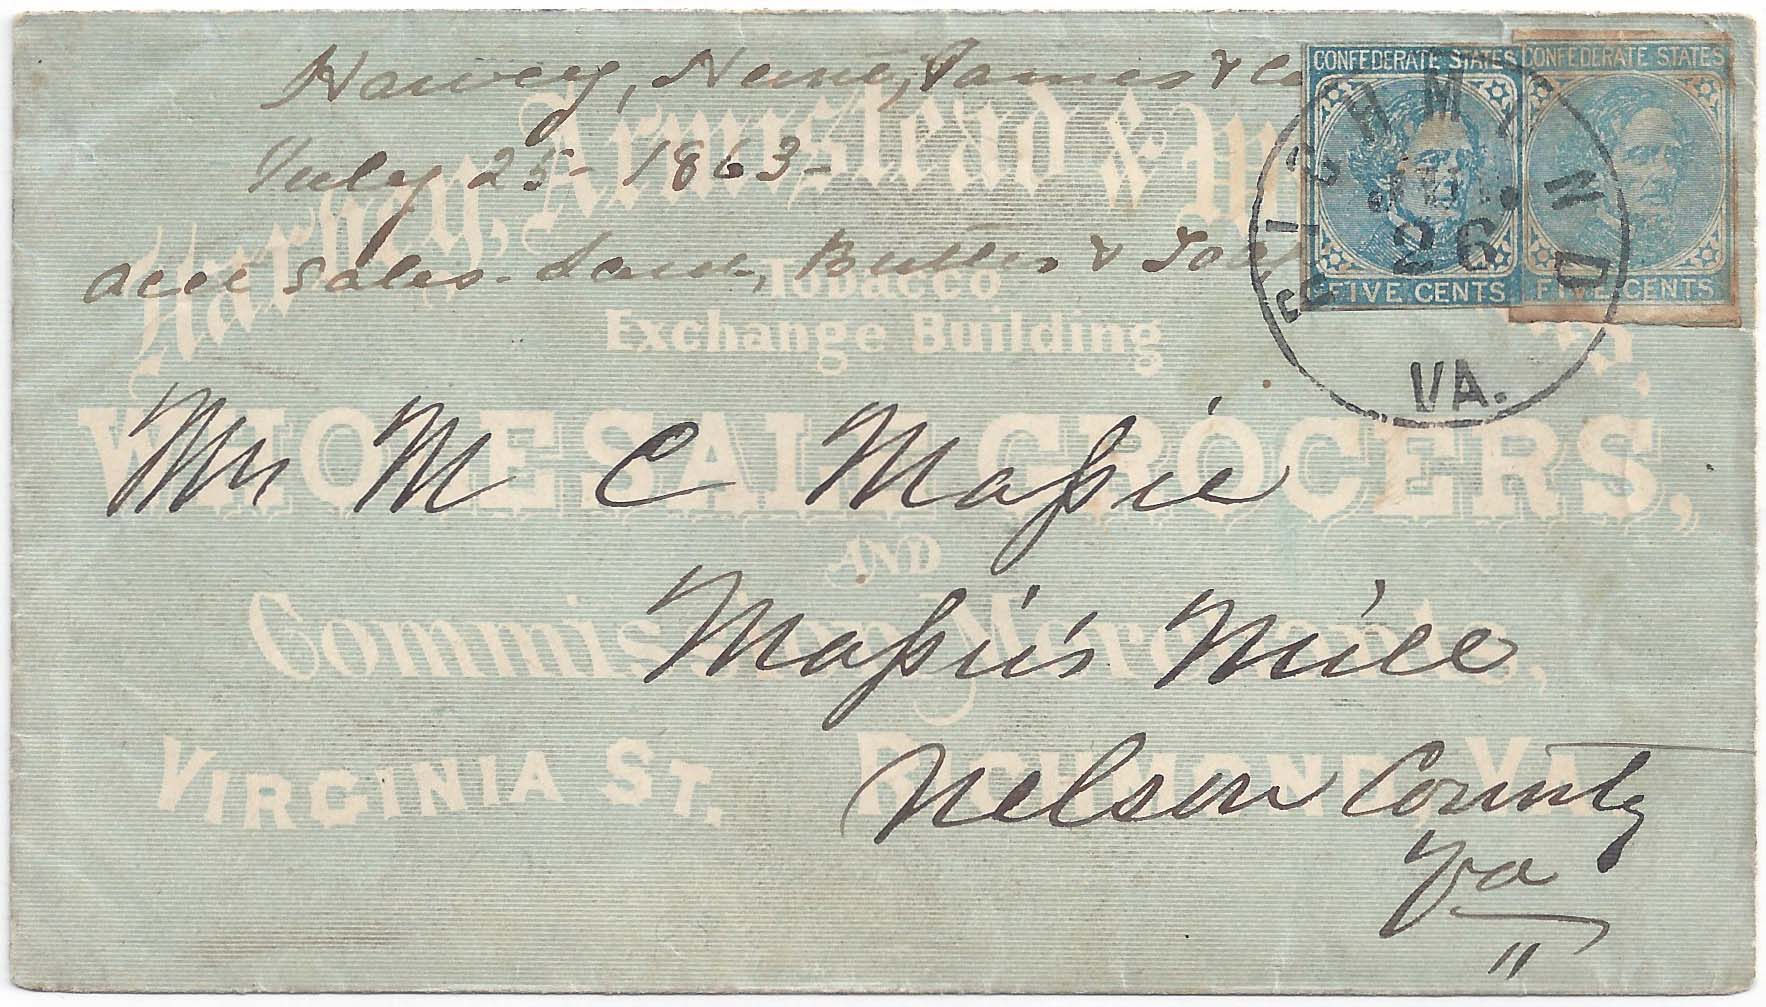 Harvey, James & Co
July 25 - 1863 -
Acct Sales - Butter &
CONFEDERATE STATES
FIVE CENTS
CONFEDERATE STATES
FIVE CENTS
RICHMOND
JUL
26
VA.
Harvey, Armistead &
Tobacco
Exchange Building
WHOLESALE GROCERS,
AND
Commission Merchants,
VIRGINIA ST. RICHMOND, VA.
Mr M C Maſsie
Maſsie's Mill
Nelson County
Va